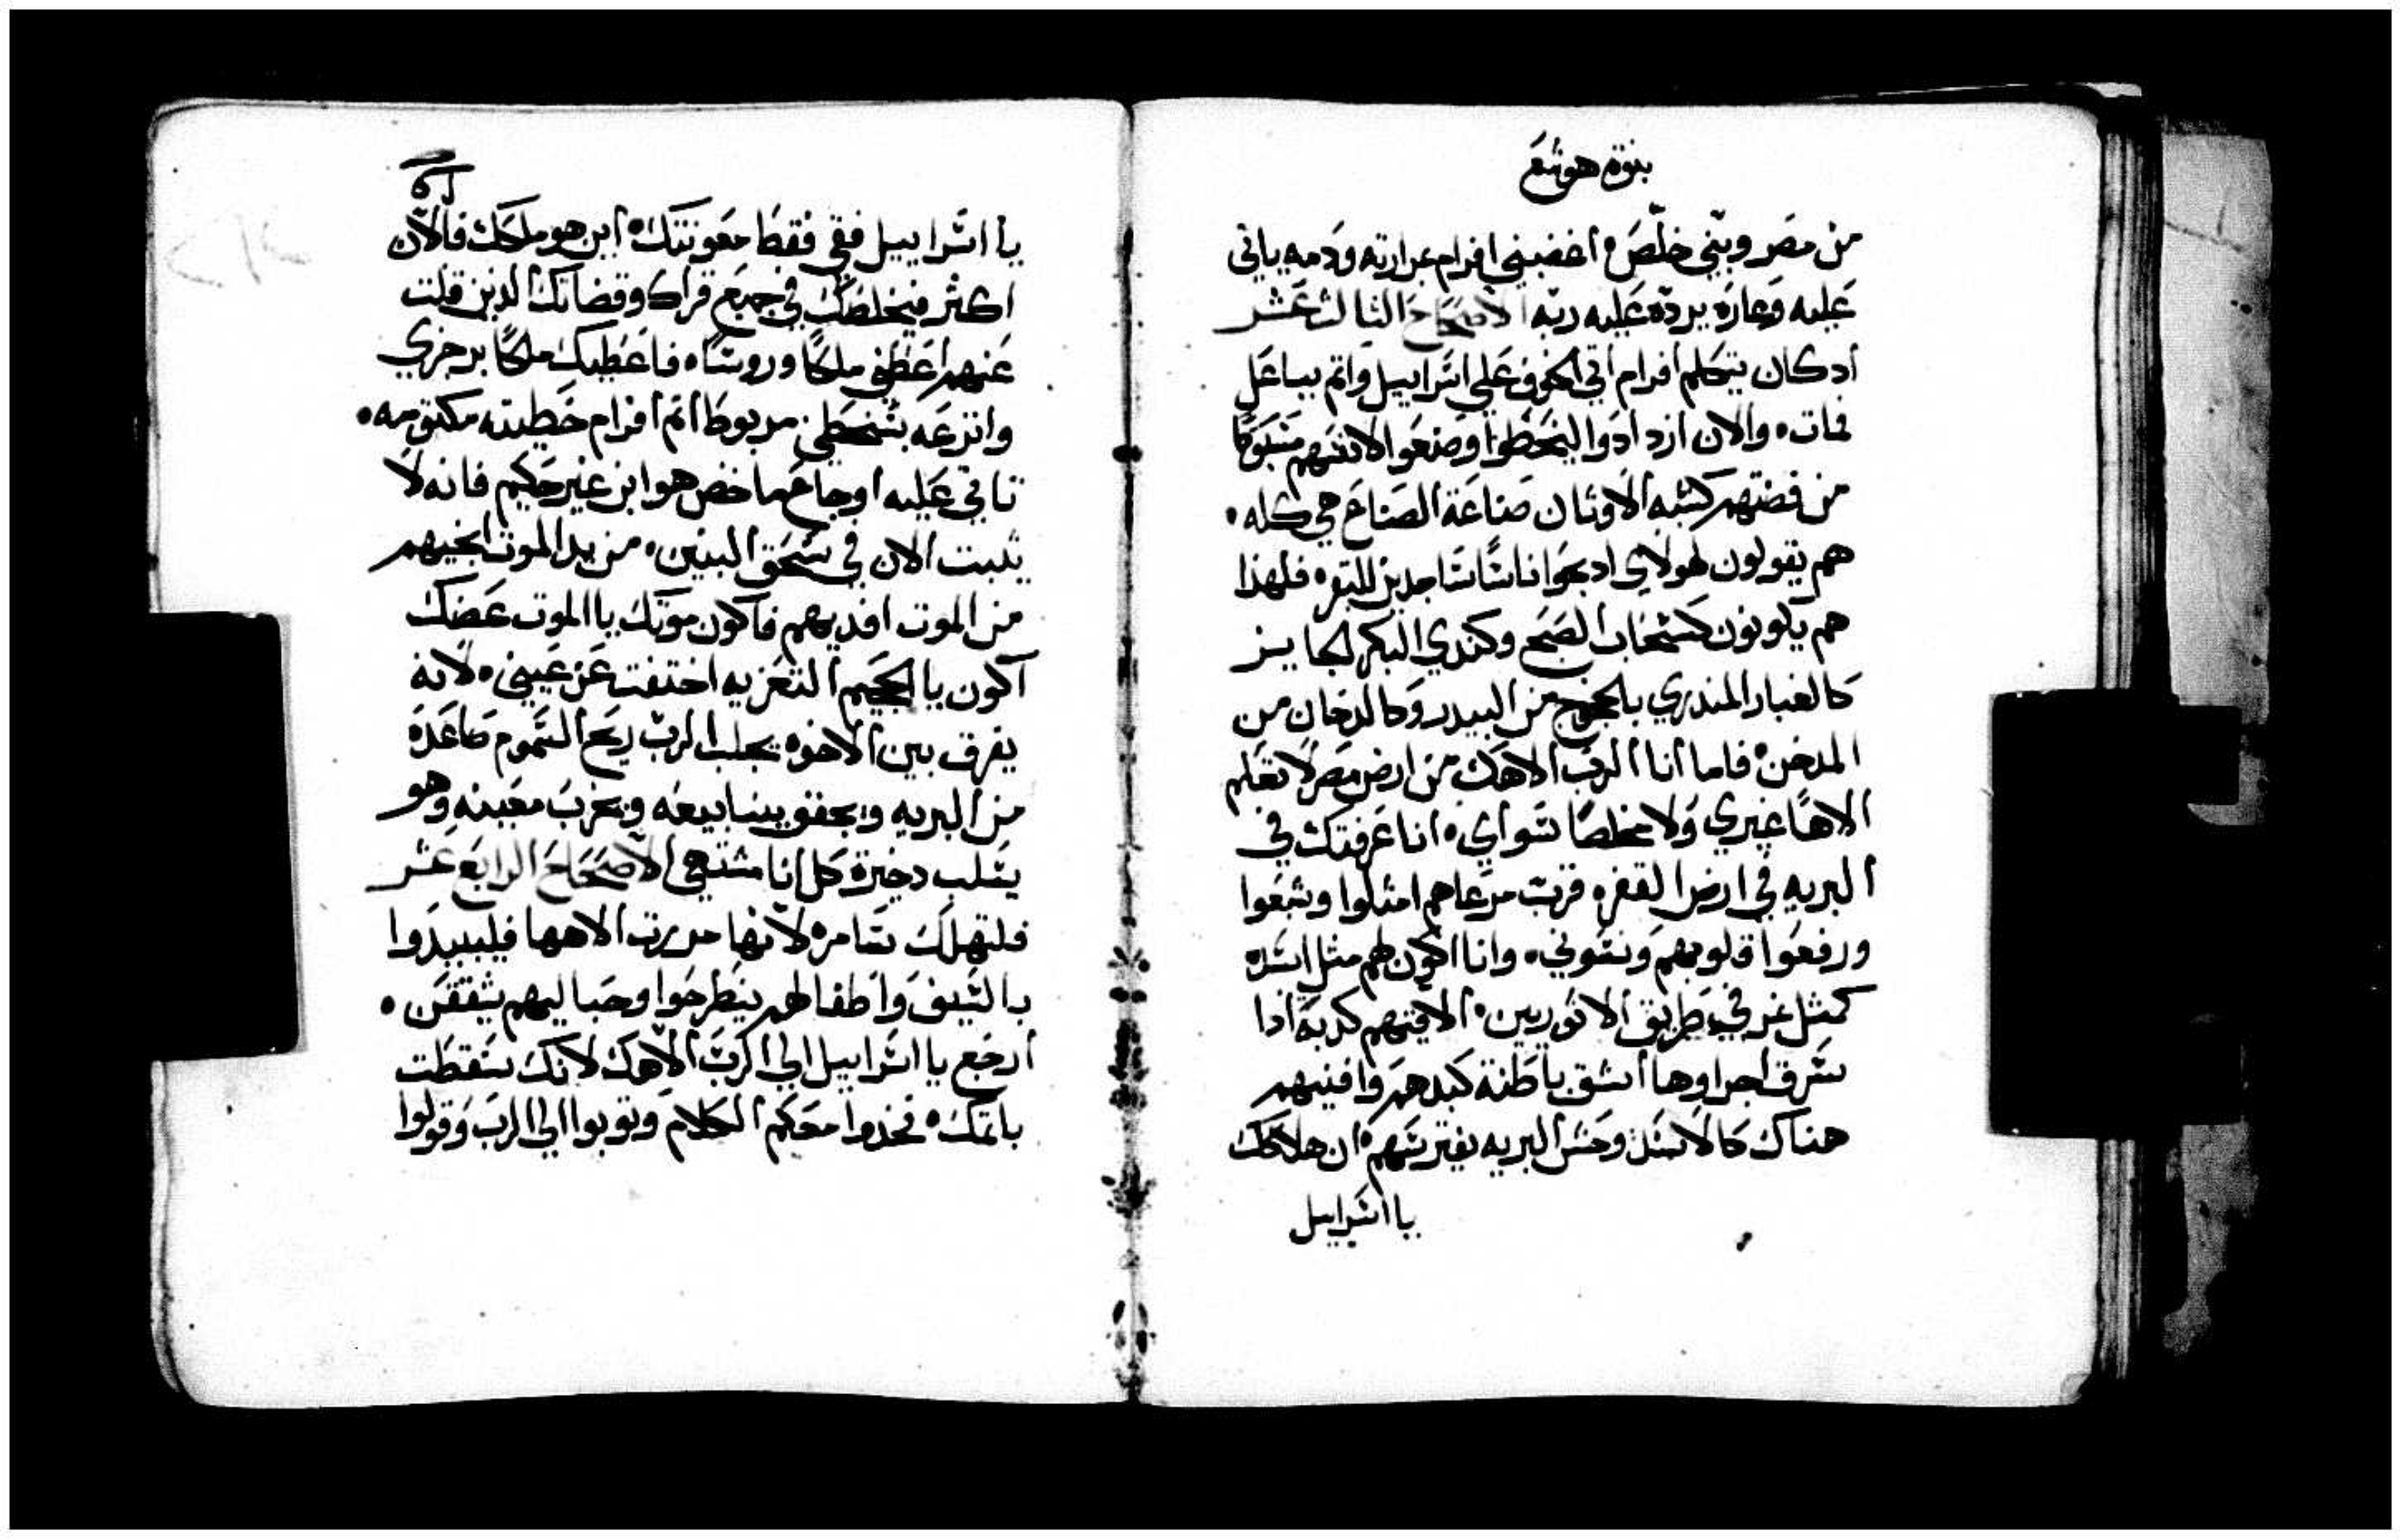 بنوة هوشع
من مصر وبنبي خلّص اغضبني افرام بمرارته ودمه ياتي
عليه وعاره يرده عليه ربه الاصحاح الثالث عشر
اد كان يتكلم افرام اتي الخوف علي اسراييل واتم بباعل
فمات والان ازدادوا ليخطوا وصنعوا لانفسهم مسبوكا
من فضتهم كشبه الاوثان صناعة الصناع هي كله
هم يقولون لهولاي ادبحوا اناسا ساجدين للبقر فلهذا
هم يكونون كسحاب الصبح وكندي البكر الجايز
كالغبار المندري بالخروج من البيدر وكالدخان من
المدخن فاما انا الرب الاهك من ارض مصر لا تعلم
الاها غيري ولا مخلصا سواي انا عرفتك في
البريه في ارض القفر قرب مرعاهم امتلوا وشبعوا
ورفعوا قلوبهم ونسوني وانا اكون لهم مثل اسده
كمثل نمر في طريق الاثوريين الاقيهم كدبة اذا
سرق اجراوها اشق باطنة كبدهم وافنيهم
هناك كالاسد وحش البريه يفترسهم ان هلاكك
يا اسراييل
يا اسراييل ففي فقط معونتك اين هو ملكك فالان
اكثر فيخلصك في جميع قراك وقضاتك الدين قلت
عنهم اعطني ملكا وروسا فاعطيك ملكا برجزي
وانتزعه بسخطي مربوط اتم افرام خطيته مكتومه
تاتي عليه اوجاع ماخض هو ابن غير حكيم فانه لا
يثبت الان في سحق البنين من يد الموت انجيهم
من الموت افديهم فاكون موتك يا الموت عضك
اكون يا الجحيم التعزيه اختفت عن عيني لانه
يفرق بين الاخوه يجلب الرب ريح السموم صاعدة
من البريه ويجفف ينابيعه ويخرب معينه وهو
يسلب دخيرة كل انا مشتهي الاصحاح الرابع عشر
فلتهلك سامره لانها مررت الاهها فليبيدوا
بالسيف واطفالهم ينطرحوا وحباليهم يشققن
ارجع يا اسراييل الي الرب الاهك لانك سقطت
باثمك فخدوا معكم الكلام وتوبوا الي الرب وقولوا